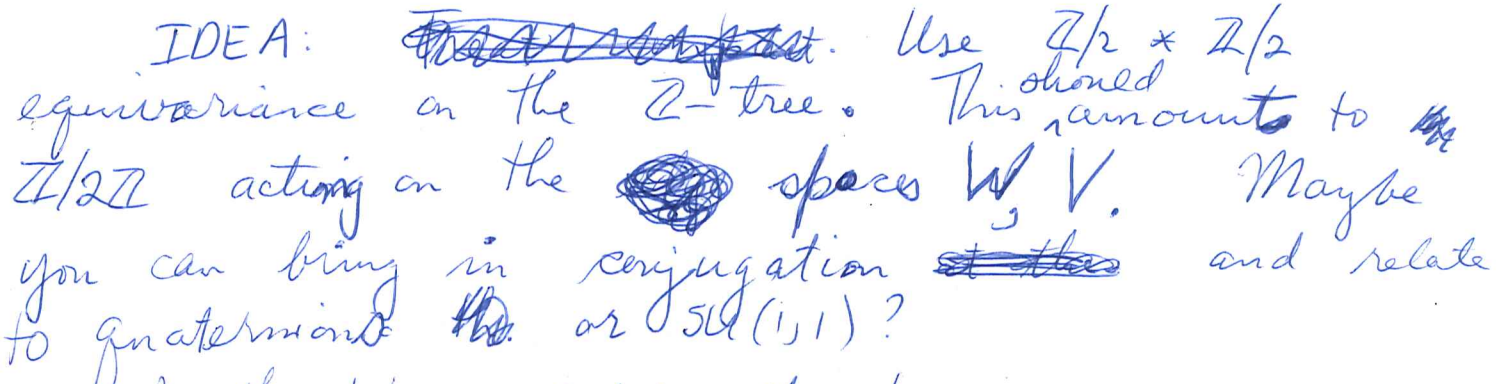 IDEA: Use ℤ/2 * ℤ/2
equivariance on the ℤ-tree. This should amount to
ℤ/2ℤ acting on the spaces W, V. Maybe
you can bring in conjugation and relate
to quaternions or SU(1,1)?